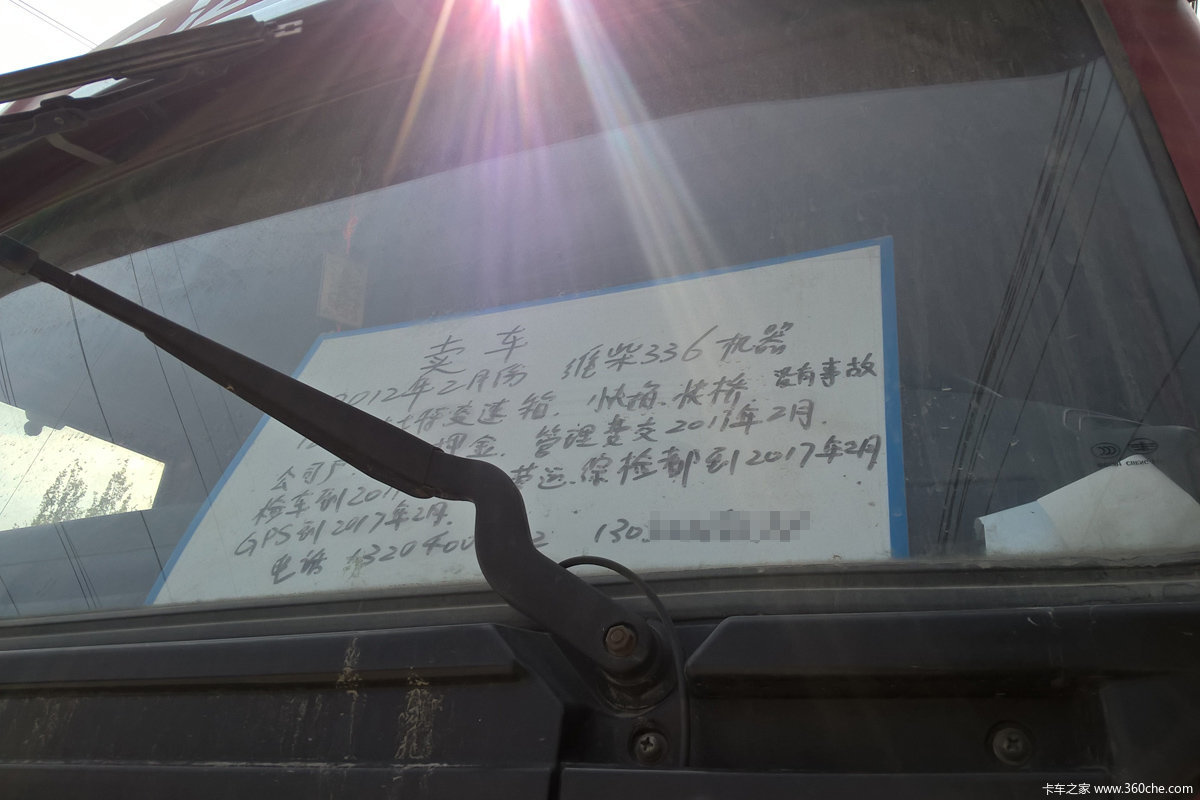 卖车
2012年2月份 维柴336机器
变速箱. 快梅. 快桥 没有事故
公司户 押金. 管理费交2017年2月.
检车到201 营运. 综检都到2017年2月
GPS到2017年2月.
电话 1320400 2 130
卡车之家 www.360che.com